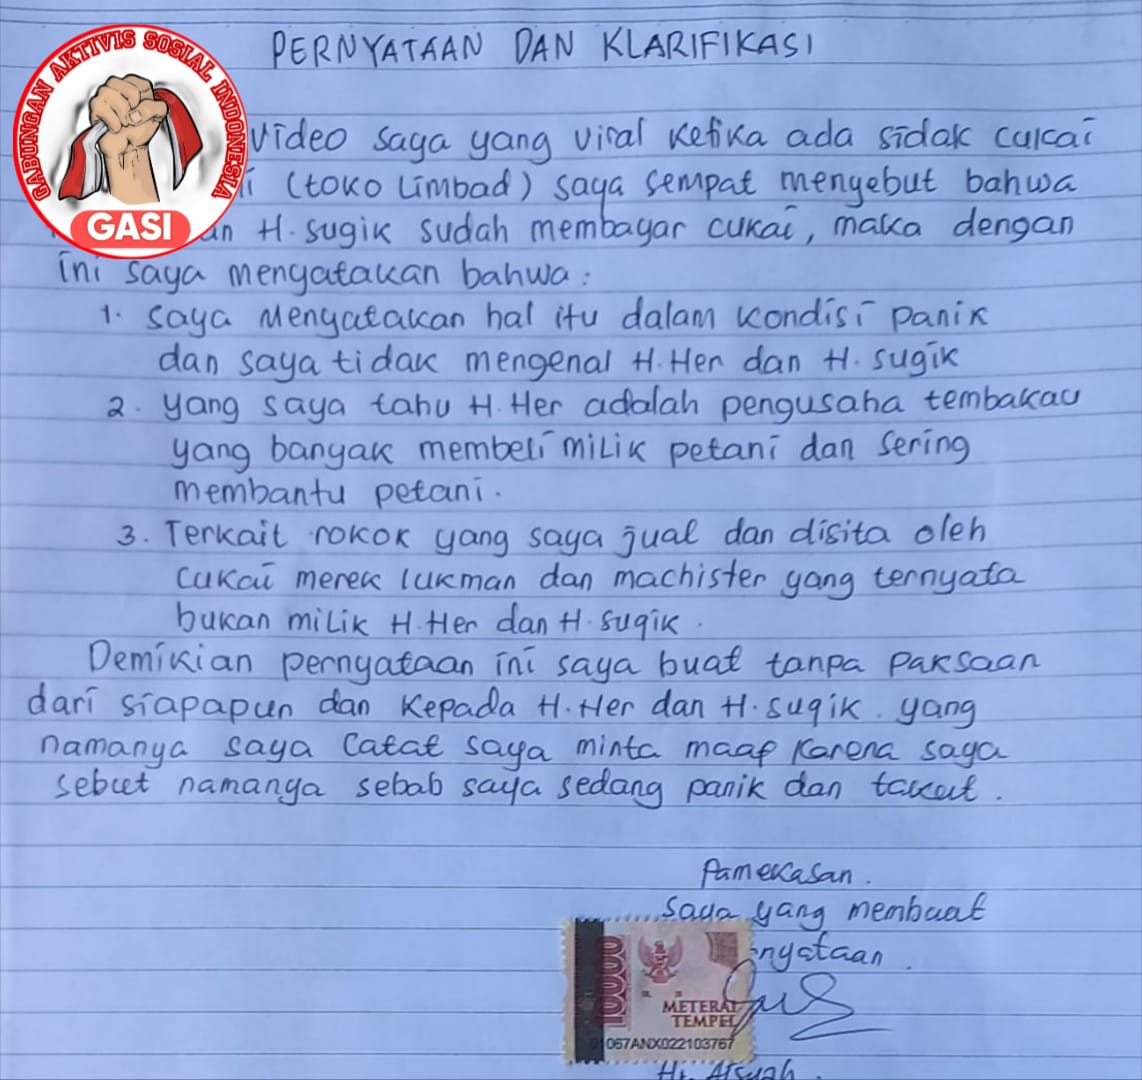 PERNYATAAN DAN KLARIFIKASI
GABUNGAN AKTIVIS SOSIAL INDONESIA
GASI
video saya yang viral ketika ada sidak cukai
(toko Limbad) saya sempat mengebut bahwa
H. sugik sudah membayar cukai, maka dengan
ini saya mengatakan bahwa :
1. saya Mengatakan hal itu dalam kondisi panik
dan saya tidak mengenal H. Her dan H. sugik
2. yang saya tahu H. Her adalah pengusaha tembakau
yang banyak membeli miLik petani dan sering
membantu petani.
3. Terkait rokok yang saya jual dan disita oleh
cukai merek lukman dan machister yang ternyata
bukan miLik H. Her dan H. sugik.
Demikian pernyataan ini saya buat tanpa paksaan
dari siapapun dan Kepada H. Her dan H. sugik. yang
namanya saya catat saya minta maap karena saya
sebut namanya sebab saya sedang panik dan takut.
Pamekasan.
saya yang membuat
nyataan.
10000
METERAI
TEMPEL
01067ANX022103767